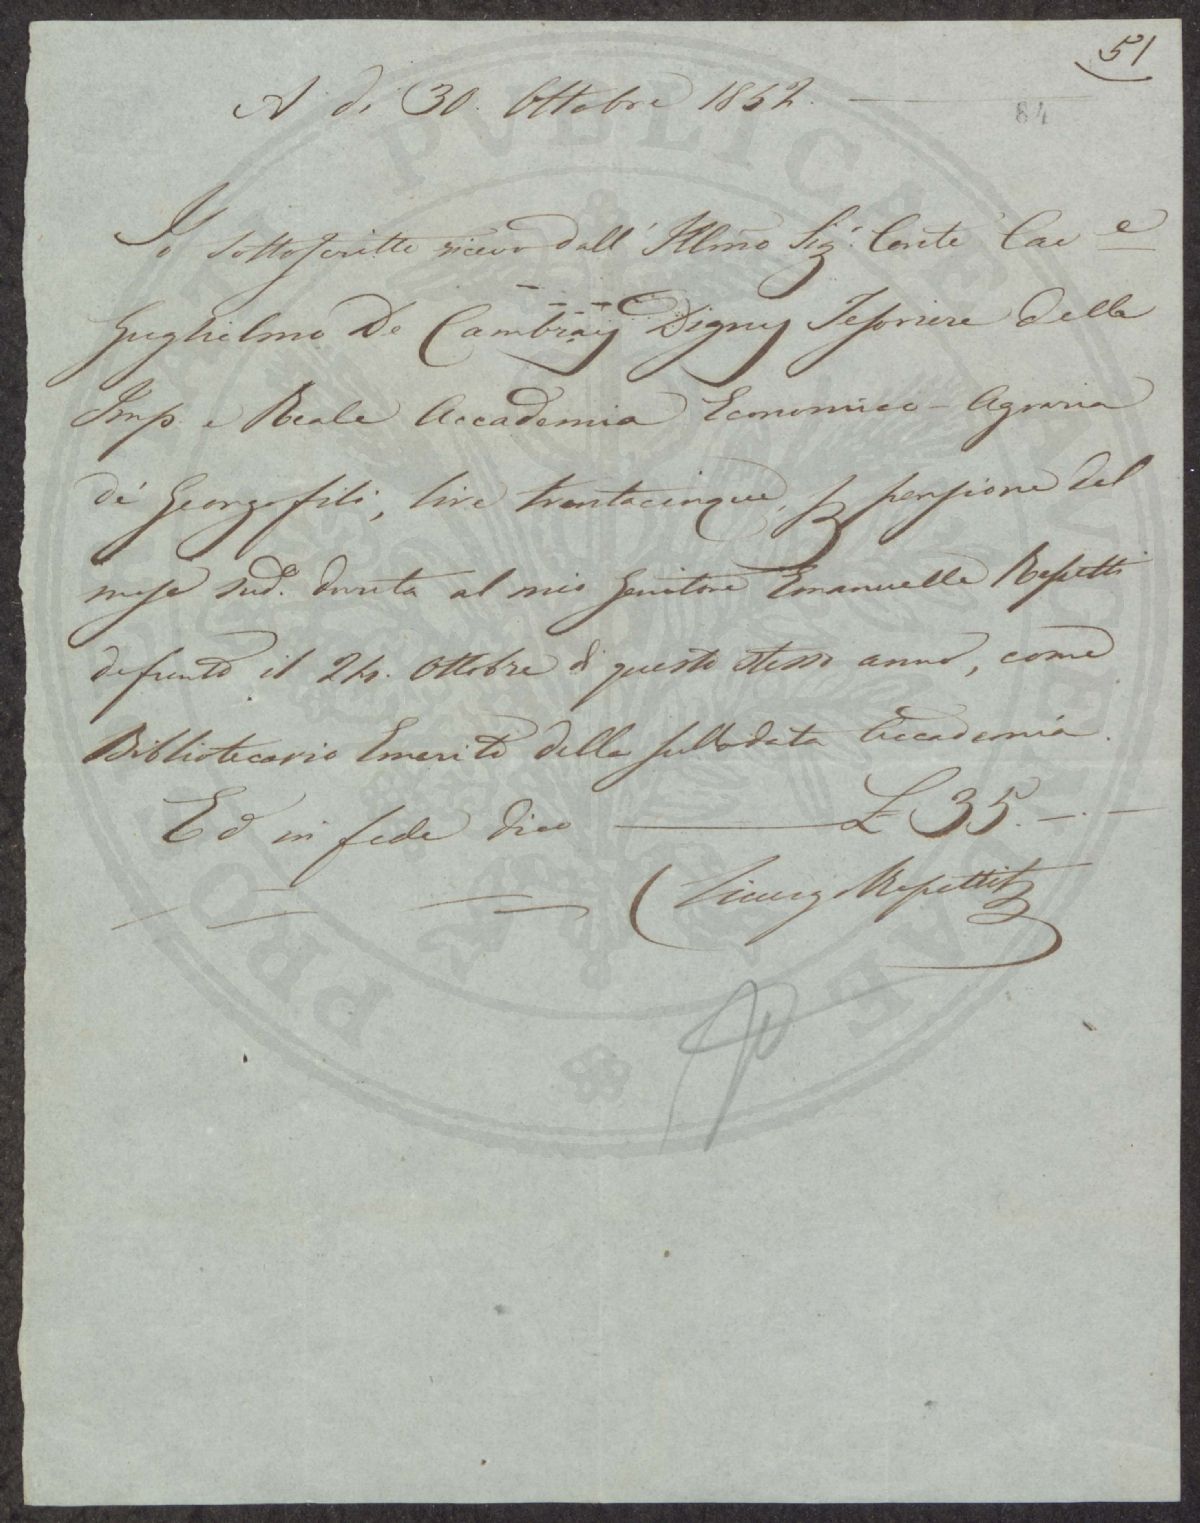 51
A dì 30. Ottobre 1852.
84
Io sottoscritto ricevo dall' Illmo Sig. Conte Cav e
Guglielmo De Cambray Digny Tesoriere della
Imp. e Reale Accademia Economico-Agraria
de' Georgofili, lire trentacinque, p pensione del
mese sud.o dovuta al mio Genitore Emanuelle Repetti
defunto il 24. Ottobre di questo stesso anno, come
Bibliotecario Emerito della sullodata Accademia.
Ed in fede dico £ 35. -.-
Repetti